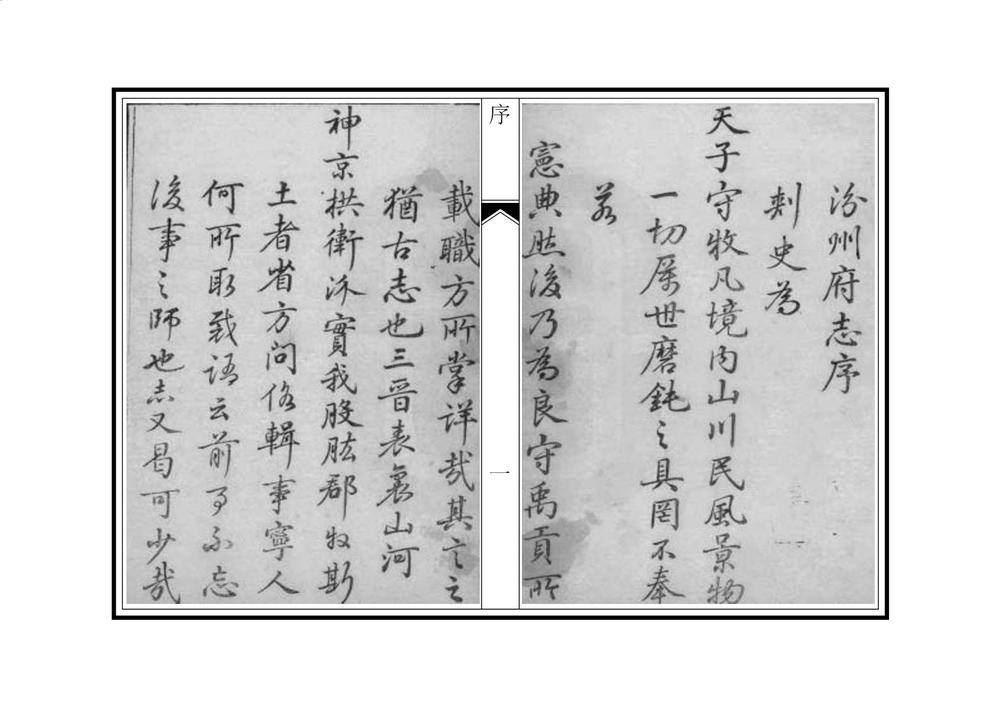 汾州府志序
刺史為
天子守牧凡境內山川民風景物
一切厲世磨鈍之具罔不奉
若
憲典然後乃為良守禹貢所
序
一
載職方所掌詳哉其言之
猶古志也三晉表裏山河
神京拱衛汾實我股肱郡牧斯
土者省方問俗輯事寧人
何所取哉語云前事不忘
後事之師也志又曷可少哉